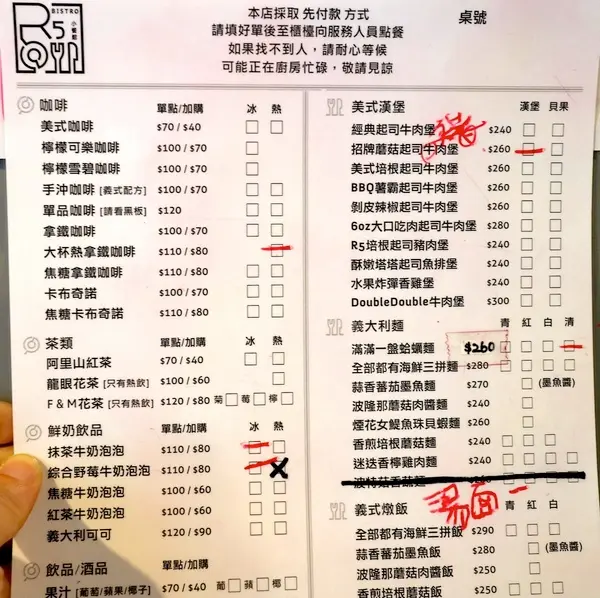 BISTRO
R5
小餐館
本店採取 先付款 方式
請填好單後至櫃檯向服務人員點餐
如果找不到人，請耐心等候
可能正在廚房忙碌，敬請見諒
桌號
咖啡 單點/加購 冰 熱
美式咖啡 $70 / $40
檸檬可樂咖啡 $100 / $70
檸檬雪碧咖啡 $100 / $70
手沖咖啡 [義式配方] $100 / $70
單品咖啡 [請看黑板] $120
拿鐵咖啡 $100 / $70
大杯熱拿鐵咖啡 $110 / $80
焦糖拿鐵咖啡 $110 / $80
卡布奇諾 $100 / $70
焦糖卡布奇諾 $110 / $80
茶類 單點/加購
阿里山紅茶 $70 / $40
龍眼花茶 [只有熱飲] $100 / $60
F&M花茶 [只有熱飲] $120 / $80 菊 莓 檸
鮮奶飲品 單點/加購 冰 熱
抹茶牛奶泡泡 $110 / $80
綜合野莓牛奶泡泡 $110 / $80
焦糖牛奶泡泡 $100 / $60
紅茶牛奶泡泡 $100 / $60
義大利可可 $120 / $90
飲品/酒品 單點/加購
果汁 [葡萄/蘋果/椰子] $70 / $40 葡 蘋 椰
美式漢堡 漢堡 貝果
經典起司牛肉堡 $240
招牌蘑菇起司牛肉堡 $260
美式培根起司牛肉堡 $260
BBQ薯霸起司牛肉堡 $260
剝皮辣椒起司牛肉堡 $260
6oz大口吃肉起司牛肉堡 $280
R5培根起司豬肉堡 $240
酥嫩塔塔起司魚排堡 $240
水果炸彈香雞堡 $240
DoubleDouble牛肉堡 $300
義大利麵 青 紅 白 清
滿滿一盤蛤蠣麵 $260
全部都有海鮮三拼麵 $280
蒜香蕃茄墨魚麵 $270 (墨魚醬)
波隆那蘑菇肉醬麵 $240
煙花女鯷魚珠貝蝦麵 $260
香煎培根蘑菇麵 $240
迷迭香檸雞肉麵 $240
波特菇香蔬麵
湯面一
義式燉飯 青 紅 白
全部都有海鮮三拼飯 $290
蒜香蕃茄墨魚飯 $280 (墨魚醬)
波隆那蘑菇肉醬飯 $250
香煎培根蘑菇飯 $250